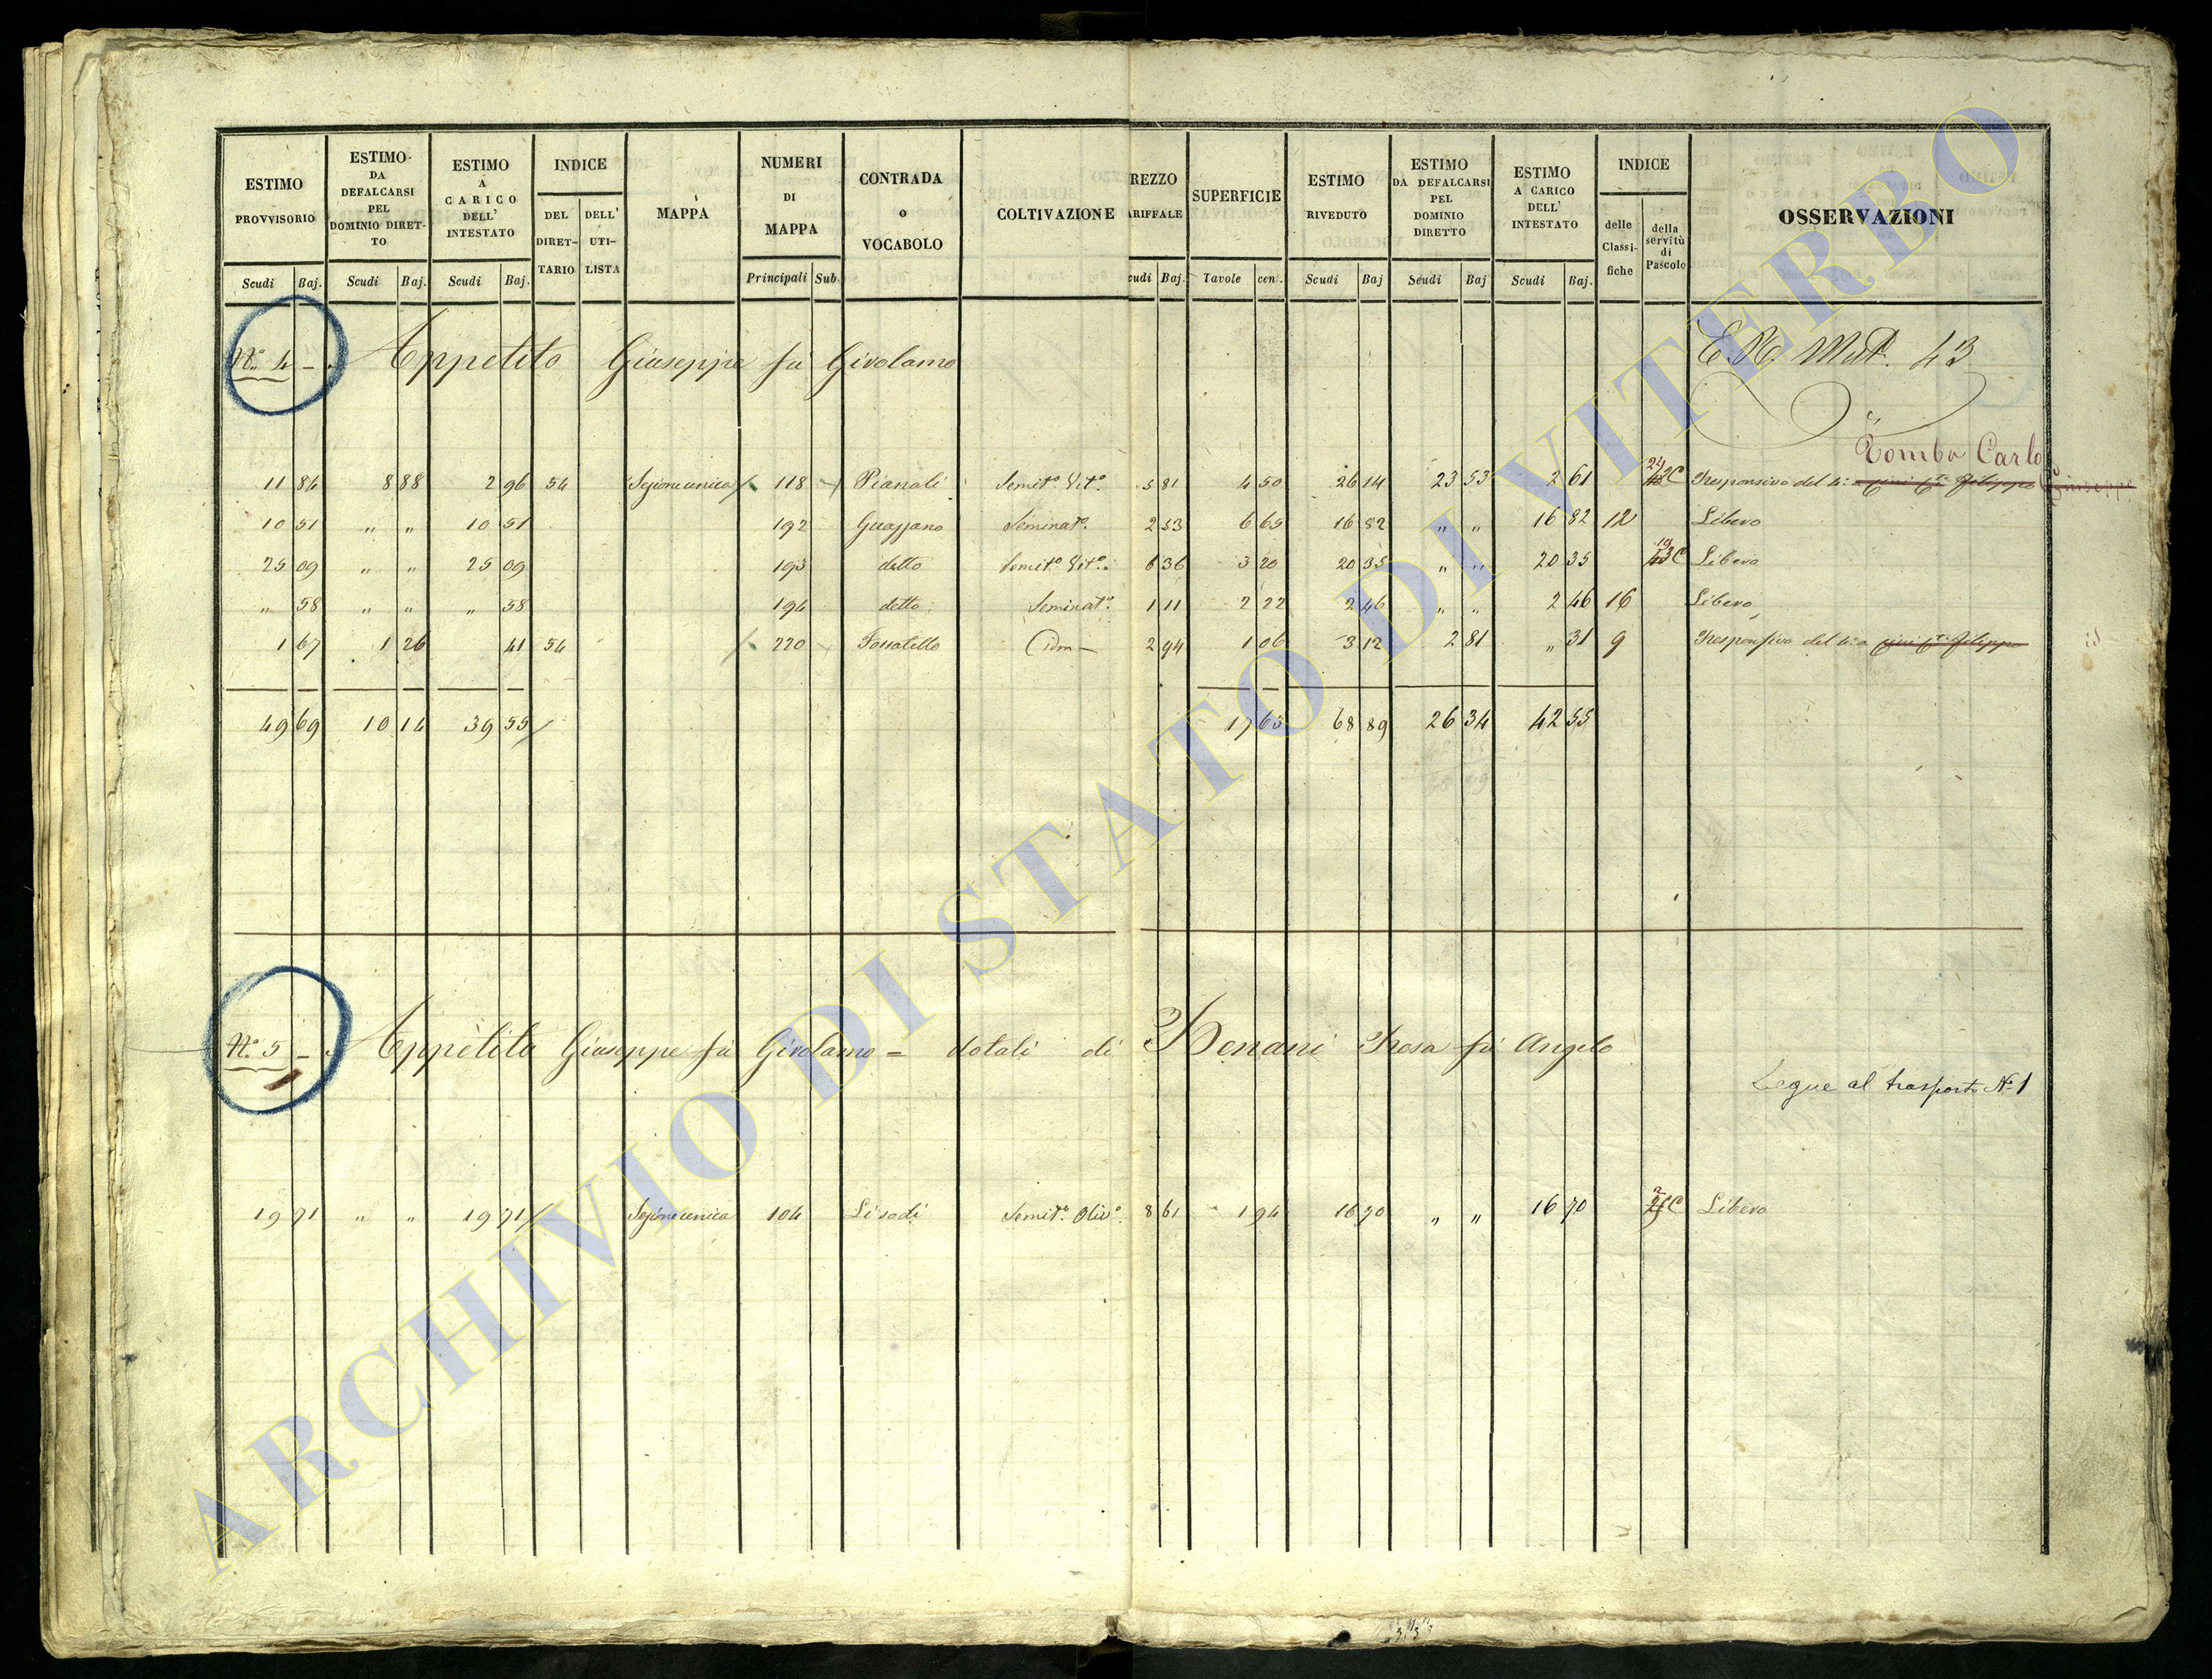 ESTIMO PROVVISORIO
ESTIMO DA DEFALCARSI PEL DOMINIO DIRETTO
ESTIMO A CARICO DELL' INTESTATO
INDICE
DEL DIRETTARIO
DELL' UTILISTA
MAPPA
NUMERI DI MAPPA
CONTRADA o VOCABOLO
COLTIVAZIONE
REZZO ARIFFALE
SUPERFICIE
ESTIMO RIVEDUTO
ESTIMO DA DEFALCARSI PEL DOMINIO DIRETTO
ESTIMO A CARICO DELL' INTESTATO
INDICE
delle Classifiche
della servitù di Pascolo
OSSERVAZIONI
Scudi Baj. Scudi Baj. Scudi Baj. Principali Sub. cudi Baj. Tavole cen. Scudi Baj Scudi Baj Scudi Baj.
N.o 4 Appetito Giuseppe fu Girolamo
Mut. 43
Tombo Carlo
11 84 8 88 2 96 54 Sezione unica 118 Pianali Semit.o Vit.o 5 81 4 50 26 14 23 53 2 61 24 C Responsivo del 4.o
10 51 " " 10 51 192 Guazzano Seminat.o 2 53 6 65 16 82 " " 16 82 12 Libero
25 09 " " 25 09 193 detto Semit.o Vit.o 6 36 3 20 20 35 " " 20 35 19 C Libero
" 58 " " " 58 194 detto Seminat.o 1 11 2 22 2 46 " " 2 46 16 Libero
1 67 1 26 41 54 220 Fossatello Idm 2 94 1 06 3 12 2 81 " 31 9 Responsivo del 4.o a
49 69 10 14 39 55 17 63 68 89 26 34 42 55
N.o 5 Appetito Giuseppe fu Girolamo = dotali di Renani Rosa fu Angelo
Segue al trasporto N.o 1
19 71 " " 19 71 Sezione unica 104 Li sodi Semit.o Oliv.o 8 61 1 94 16 70 " " 16 70 C Libero
ARCHIVIO DI STATO DI VITERBO